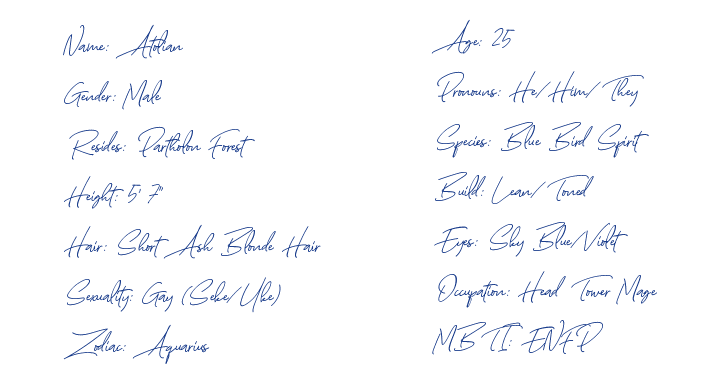 Name: Atolian
Gender: Male
Resides: Partholon Forest
Height: 5' 7"
Hair: Short Ash Blonde Hair
Sexuality: Gay (Seke/Uke)
Zodiac: Aquarius
Age: 25
Pronouns: He/Him/They
Species: Blue Bird Spirit
Build: Lean/Toned
Eyes: Sky Blue/Violet
Occupation: Head Tower Mage
MBTI: ENFP